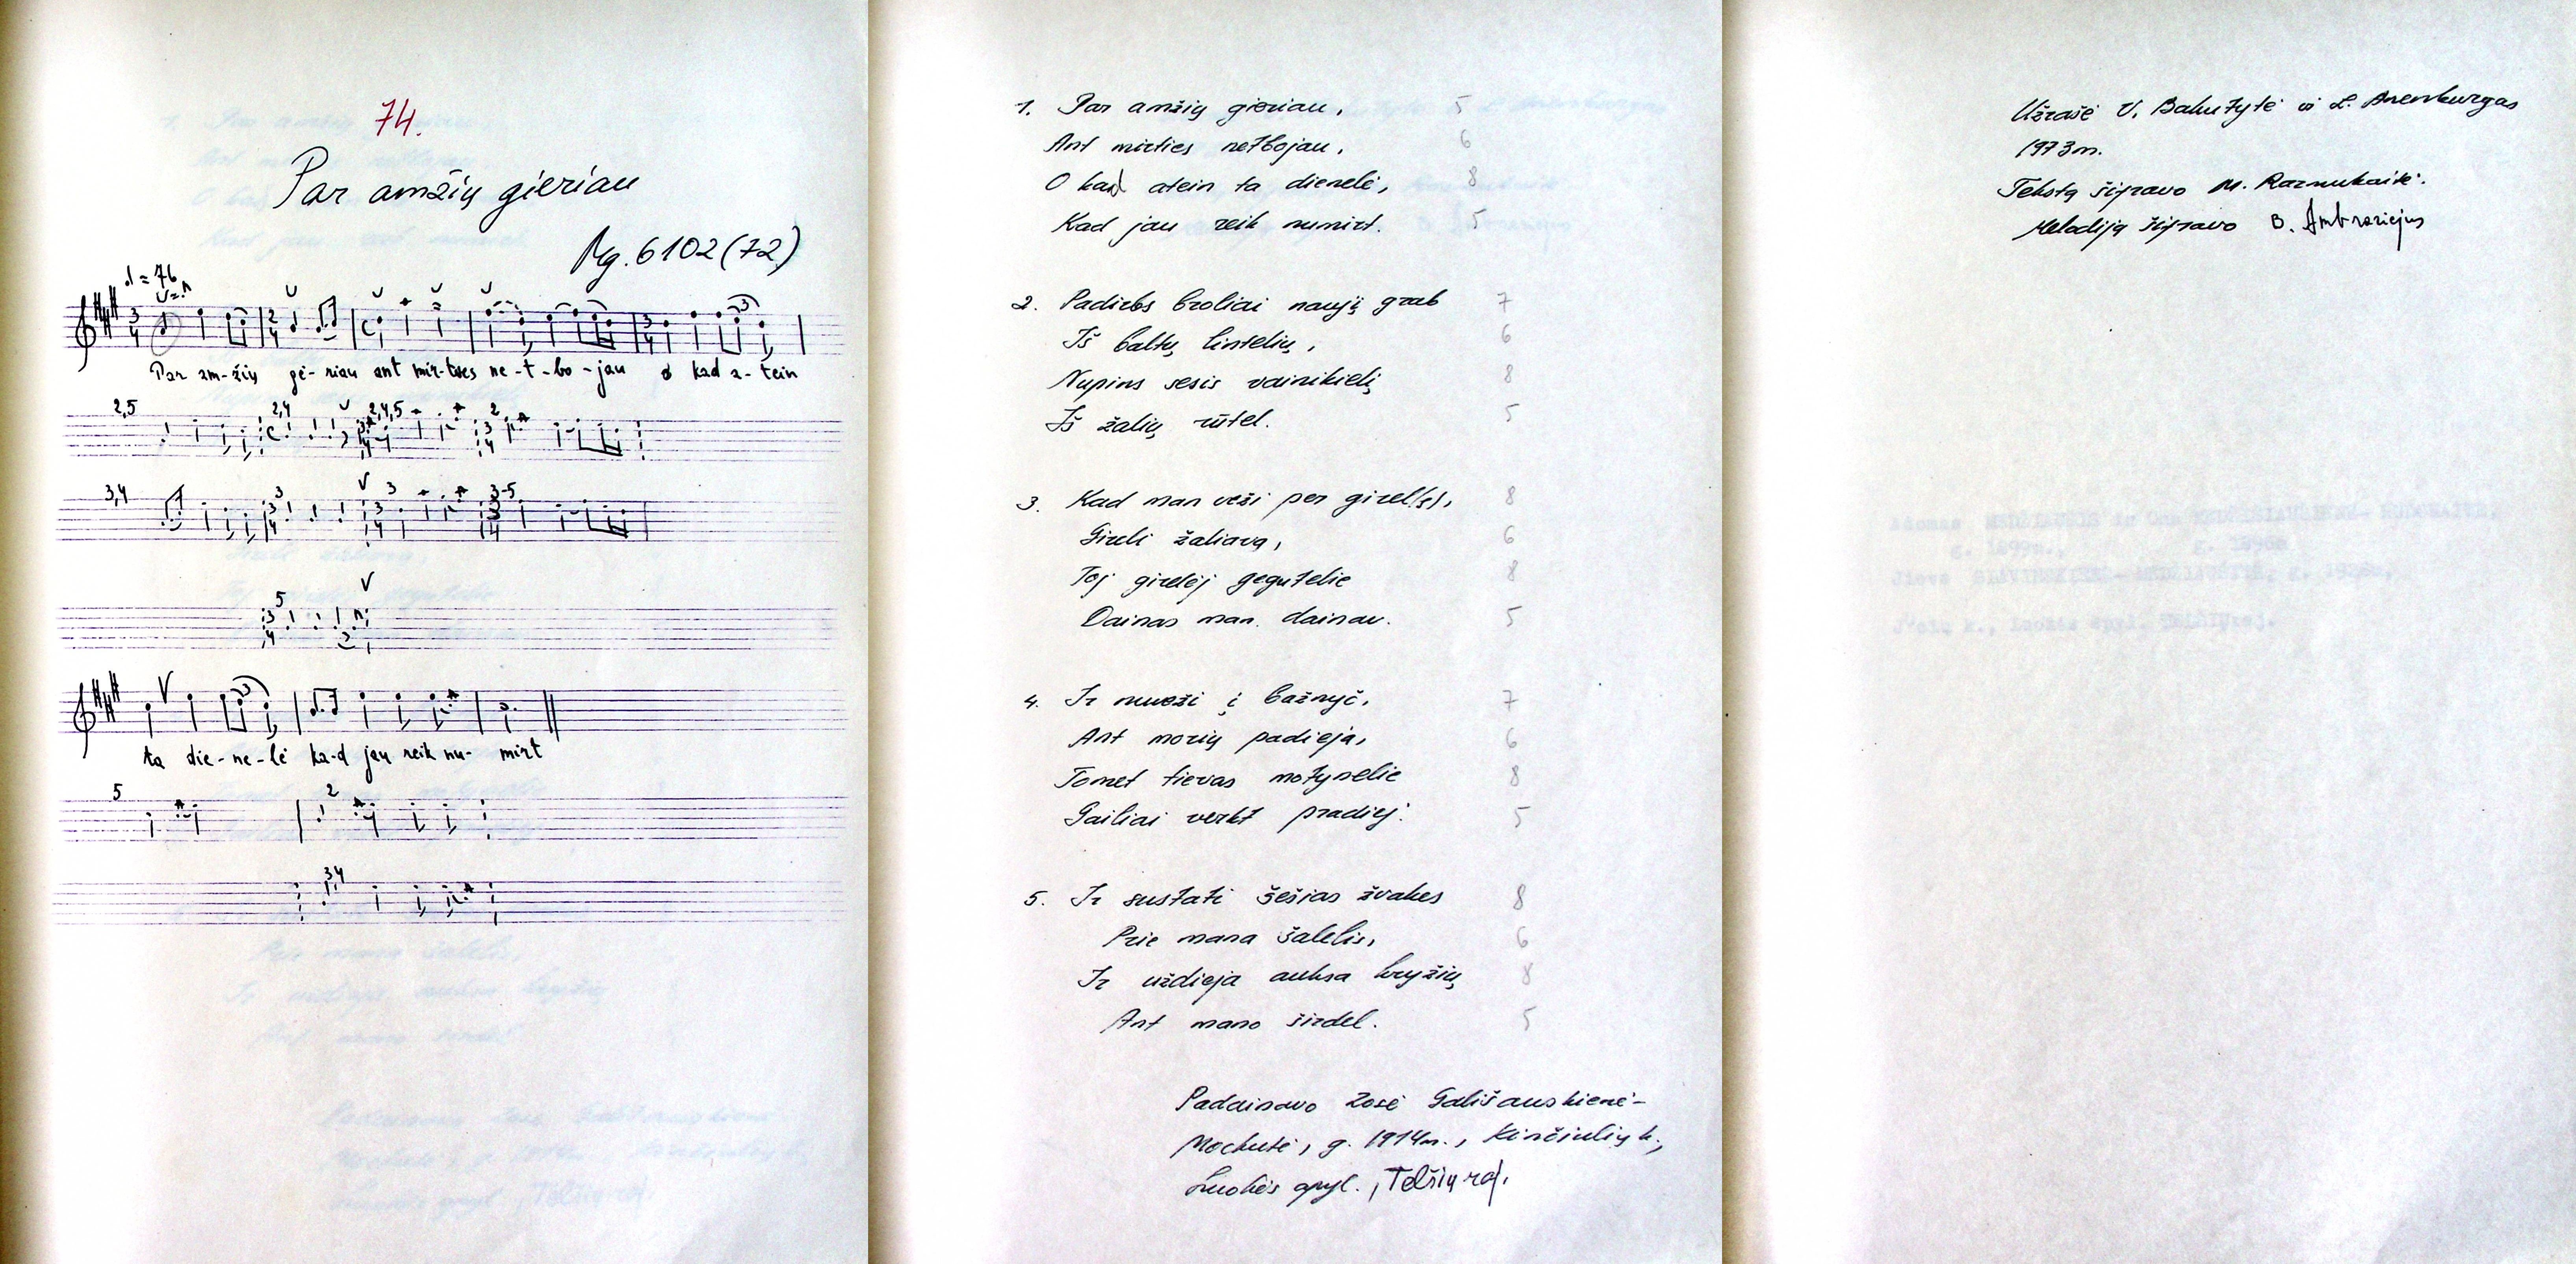 74.
Par amžių gieriau
Mg. 6102 (72)
♩ = 76
Par am-žių gė-riau ant mir-ties ne-t-bo-jau o kad a-tein
2,5 2,4 2,4,5 2
3,4 3 3 3-5
5
ta die-ne-lė ka-d jau reik nu-mirt
5 2
3,4
1. Par amžių gieriau, 5
Ant mirties netbojau, 6
O kad atein ta dienelė, 8
Kad jau reik numirt. 5
2. Padirbs broliai naujį grab 7
Iš baltų lintelių, 6
Nupins sesis vainikielį 8
Iš žalių rūtel. 5
3. Kad man veži per girel(ę), 8
Gireli žaliavą, 6
Toj girelėj gegutelie 8
Dainas man dainav. 5
4. Ir nuveži į bažnyč, 7
Ant morių padieja, 6
Tomet tievas motynelie 8
Gailiai verkt pradiej. 5
5. Ir sustati šešias žvakes 8
Prie mana šalelis, 6
Ir uždieja auksa kryžių 8
Ant mano širdel. 5
Padainavo Zosė Gališauskienė-
Mockutė, g. 1914m., Kinčiulių k.,
Luokės apyl., Telšių raj.
Užrašė V. Bakutytė ir L. Arenburgas
1973m.
Tekstą šifravo M. Razmukaitė.
Melodiją šifravo B. Ambraziejus